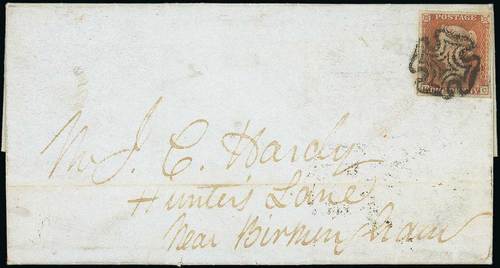 POSTAGE
Mr J. C. Hardy
Hunter's Lane
Near Birmingham